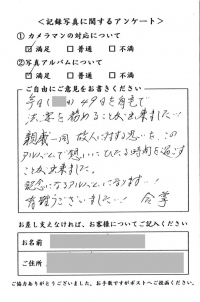 <記録写真に関するアンケート>
① カメラマンの対応について
☑ 満足 □ 普通 □ 不満
② 写真アルバムについて
☑ 満足 □ 普通 □ 不満
ご自由にご意見をお書きください
今日( )四十九日を自宅で
法要を勤めることが出来ました…
親戚一同 故人に対する思いを、この
アルバムで想いにひたる時間を過ごす
ことが出来ました。
記念になるアルバムになります…!
有難うございました…! 合掌
お差し支えなければ、お客様についてご記入ください
お名前
ご住所
ご協力ありがとうございました。お手数ですがポストへご投函ください。